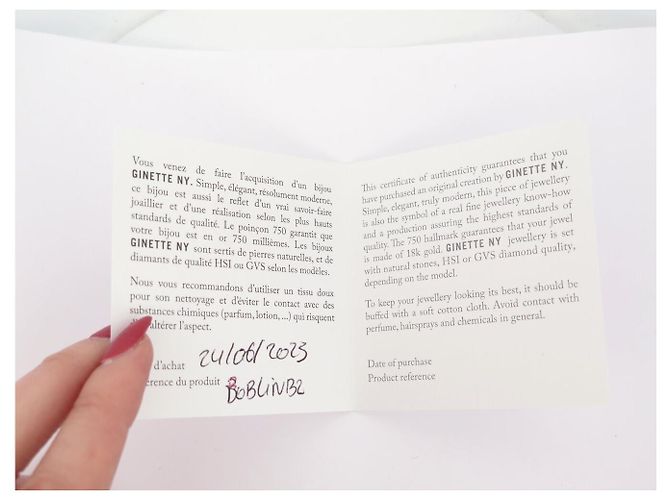 Vous venez de faire l'acquisition d'un bijou
GINETTE NY. Simple, élégant, résolument moderne,
ce bijou est aussi le reflet d'un vrai savoir-faire
joaillier et d'une réalisation selon les plus hauts
standards de qualité. Le poinçon 750 garantit que
votre bijou est en or 750 millièmes. Les bijoux
GINETTE NY sont sertis de pierres naturelles, et de
diamants de qualité HSI ou GVS selon les modèles.
Nous vous recommandons d'utiliser un tissu doux
pour son nettoyage et d'éviter le contact avec des
substances chimiques (parfum, lotion, ...) qui risquent
altérer l'aspect.
d'achat 24/06/2023
érence du produit BOBLINB2
This certificate of authenticity guarantees that you
have purchased an original creation by GINETTE NY.
Simple, elegant, truly modern, this piece of jewellery
is also the symbol of a real fine jewellery know-how
and a production assuring the highest standards of
quality. The 750 hallmark guarantees that your jewel
is made of 18k gold. GINETTE NY jewellery is set
with natural stones, HSI or GVS diamond quality,
depending on the model.
To keep your jewellery looking its best, it should be
buffed with a soft cotton cloth. Avoid contact with
perfume, hairsprays and chemicals in general.
Date of purchase
Product reference